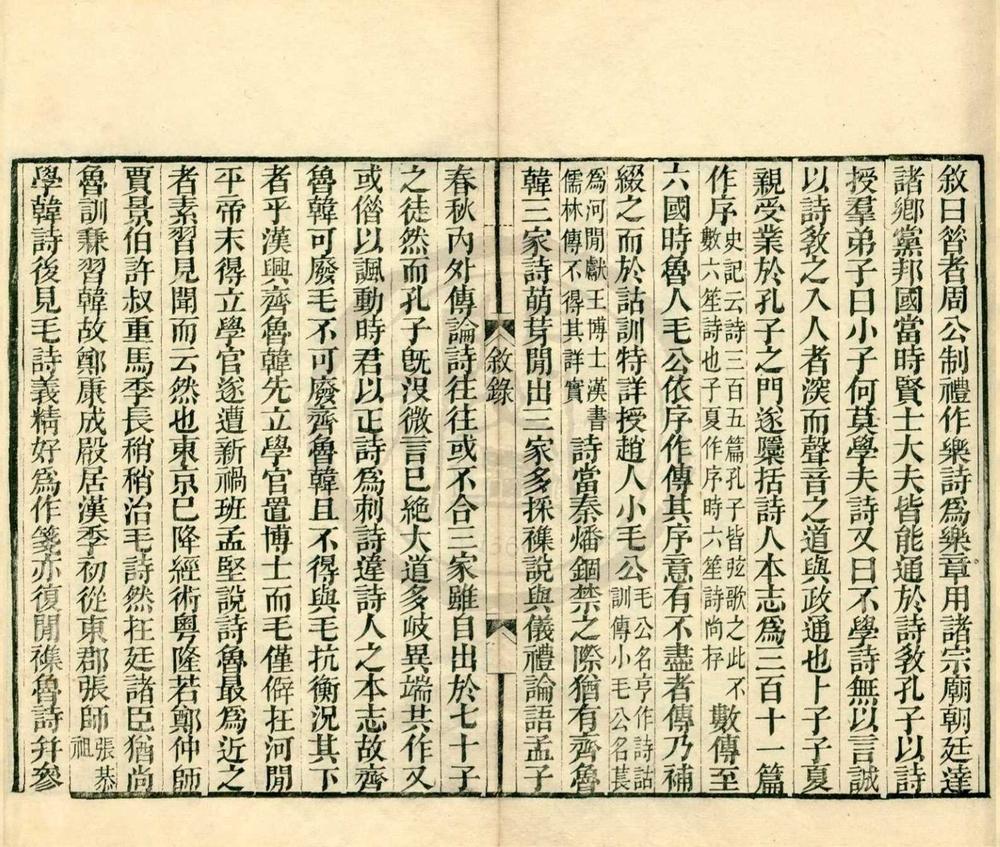 敘曰昝者周公制禮作樂詩爲樂章用諸宗廟朝廷達
諸鄉黨邦國當時賢士大夫皆能通於詩敎孔子以詩
授羣弟子曰小子何莫學夫詩又曰不學詩無以言誠
以詩敎之入人者深而聲音之道與政通也卜子子夏
親受業於孔子之門遂隱括詩人本志爲三百十一篇
作序史記云詩三百五篇孔子皆弦歌之此不數六笙詩也子夏作序時六笙詩尚存數傳至
六國時魯人毛公依序作傳其序意有不盡者傳乃補
綴之而於詁訓特詳授趙人小毛公毛公名亨作詩詁訓傳小毛公名萇
爲河閒獻王博士漢書儒林傳不得其詳實詩當秦燔錮禁之際猶有齊魯
韓三家詩萌芽閒出三家多採襍說與儀禮論語孟子
敘錄
一
春秋內外傳論詩往往或不合三家雖自出於七十子
之徒然而孔子旣沒微言已絕大道多岐異端共作又
或偺以諷動時君以正詩爲刺詩違詩人之本志故齊
魯韓可廢毛不可廢齊魯韓且不得與毛抗衡況其下
者乎漢興齊魯韓先立學官置博士而毛僅僻在河閒
平帝末得立學官遂遭新禍班孟堅說詩魯最爲近之
者素習見聞而云然也東京已降經術粵隆若鄭仲師
賈景伯許叔重馬季長稍稍治毛詩然在廷諸臣猶尚
魯訓兼習韓故鄭康成殿居漢季初從東郡張師張恭祖
學韓詩後見毛詩義精好爲作箋亦復閒襍魯詩幷參